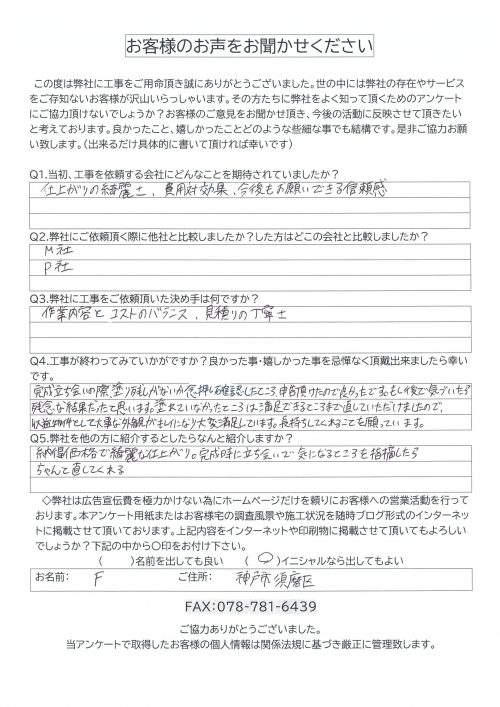 お客様のお声をお聞かせください
この度は弊社に工事をご用命頂き誠にありがとうございました。世の中には弊社の存在やサービス
をご存知ないお客様が沢山いらっしゃいます。その方たちに弊社をよく知って頂くためのアンケート
にご協力頂けないでしょうか？お客様のご意見をお聞かせ頂き、今後の活動に反映させて頂きたい
と考えております。良かったこと、嬉しかったことどのような些細な事でも結構です。是非ご協力お願
い致します。（出来るだけ具体的に書いて頂ければ幸いです）
Q1.当初、工事を依頼する会社にどんなことを期待されていましたか？
仕上がりの綺麗さ、費用対効果、今後もお願いできる信頼感
Q2.弊社にご依頼頂く際に他社と比較しましたか？した方はどこの会社と比較しましたか？
M社
P社
Q3.弊社に工事をご依頼頂いた決め手は何ですか？
作業内容とコストのバランス、見積りの丁寧さ
Q4.工事が終わってみていかがですか？良かった事・嬉しかった事を忌憚なく頂戴出来ましたら幸い
です。
完成立ち会いの際塗り残しがないか念押し確認したところ、申告頂けたので良かったです。もし後で気づいたら
残念な結果だったと思います。塗れていなかったところは満足できるところまで直していただけましたので、
収益物件として大事な外観がキレイになり大変満足しています。長持ちしてくれることを願っています。
Q5.弊社を他の方に紹介するとしたらなんと紹介しますか？
納得価格で綺麗な仕上がり。完成時に立ち会いで気になるところを指摘したら
ちゃんと直してくれる
◇弊社は広告宣伝費を極力かけない為にホームページだけを頼りにお客様への営業活動を行って
おります。本アンケート用紙またはお客様宅の調査風景や施工状況を随時ブログ形式のインターネッ
トに掲載させて頂いております。上記内容をインターネットや印刷物に掲載させて頂いてもよろしい
でしょうか？下記の中から〇印をお付け下さい。
（　）名前を出しても良い （〇）イニシャルなら出してもよい
お名前： F ご住所： 神戸市須磨区
FAX:078-781-6439
ご協力ありがとうございました。
当アンケートで取得したお客様の個人情報は関係法規に基づき厳正に管理致します。